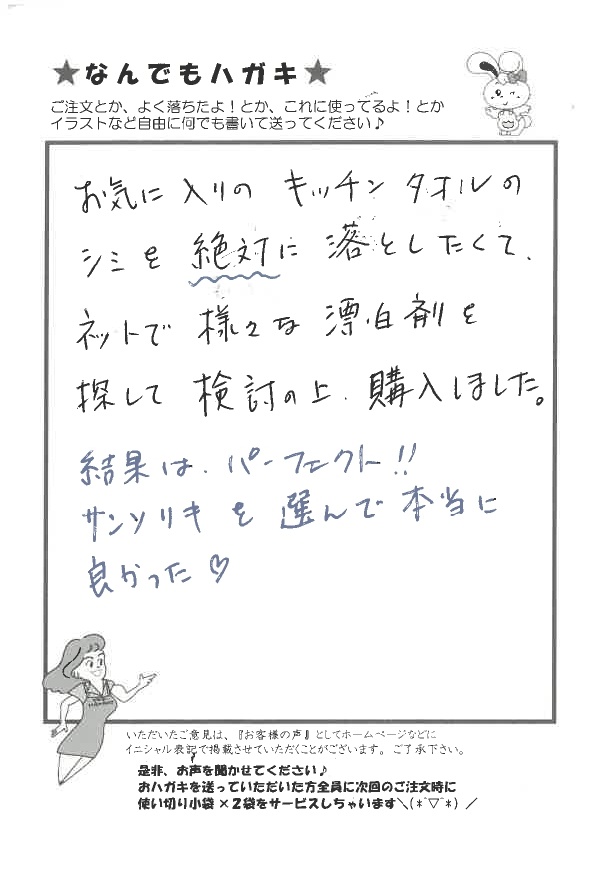 ★なんでもハガキ★
ご注文とか、よく落ちたよ！とか、これに使ってるよ！とか
イラストなど自由に何でも書いて送ってください♪
お気に入りの キッチン タオルの
シミを 絶対に 落としたくて、
ネットで 様々な 漂白剤を
探して 検討の上、購入しました。
結果は、パーフェクト!!
サンソリキ を 選んで 本当に
良かった♡
いただいたご意見は、『お客様の声』としてホームページなどに
イニシャル表記で掲載させていただくことがございます。ご了承下さい。
是非、お声を聞かせてください♪
おハガキを送っていただいた方全員に次回のご注文時に
使い切り小袋×2袋をサービスしちゃいます＼(*ˆ▽ˆ*)／